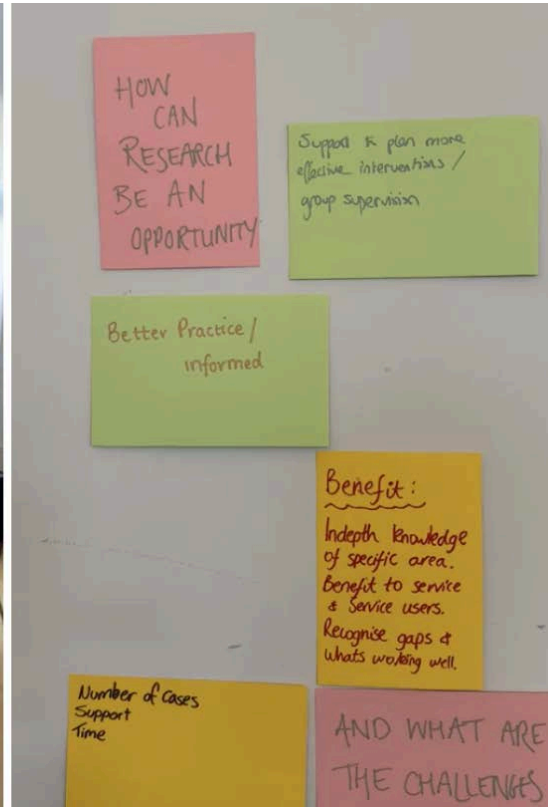 HOW
CAN
RESEARCH
BE AN
OPPORTUNITY
Support & plan more
effective interventions /
group supervision
Better Practice /
informed
Benefit:
Indepth knowledge
of specific area.
Benefit to service
& Service users.
Recognise gaps &
whats working well.
Number of cases
Support
Time
AND WHAT ARE
THE CHALLENGES